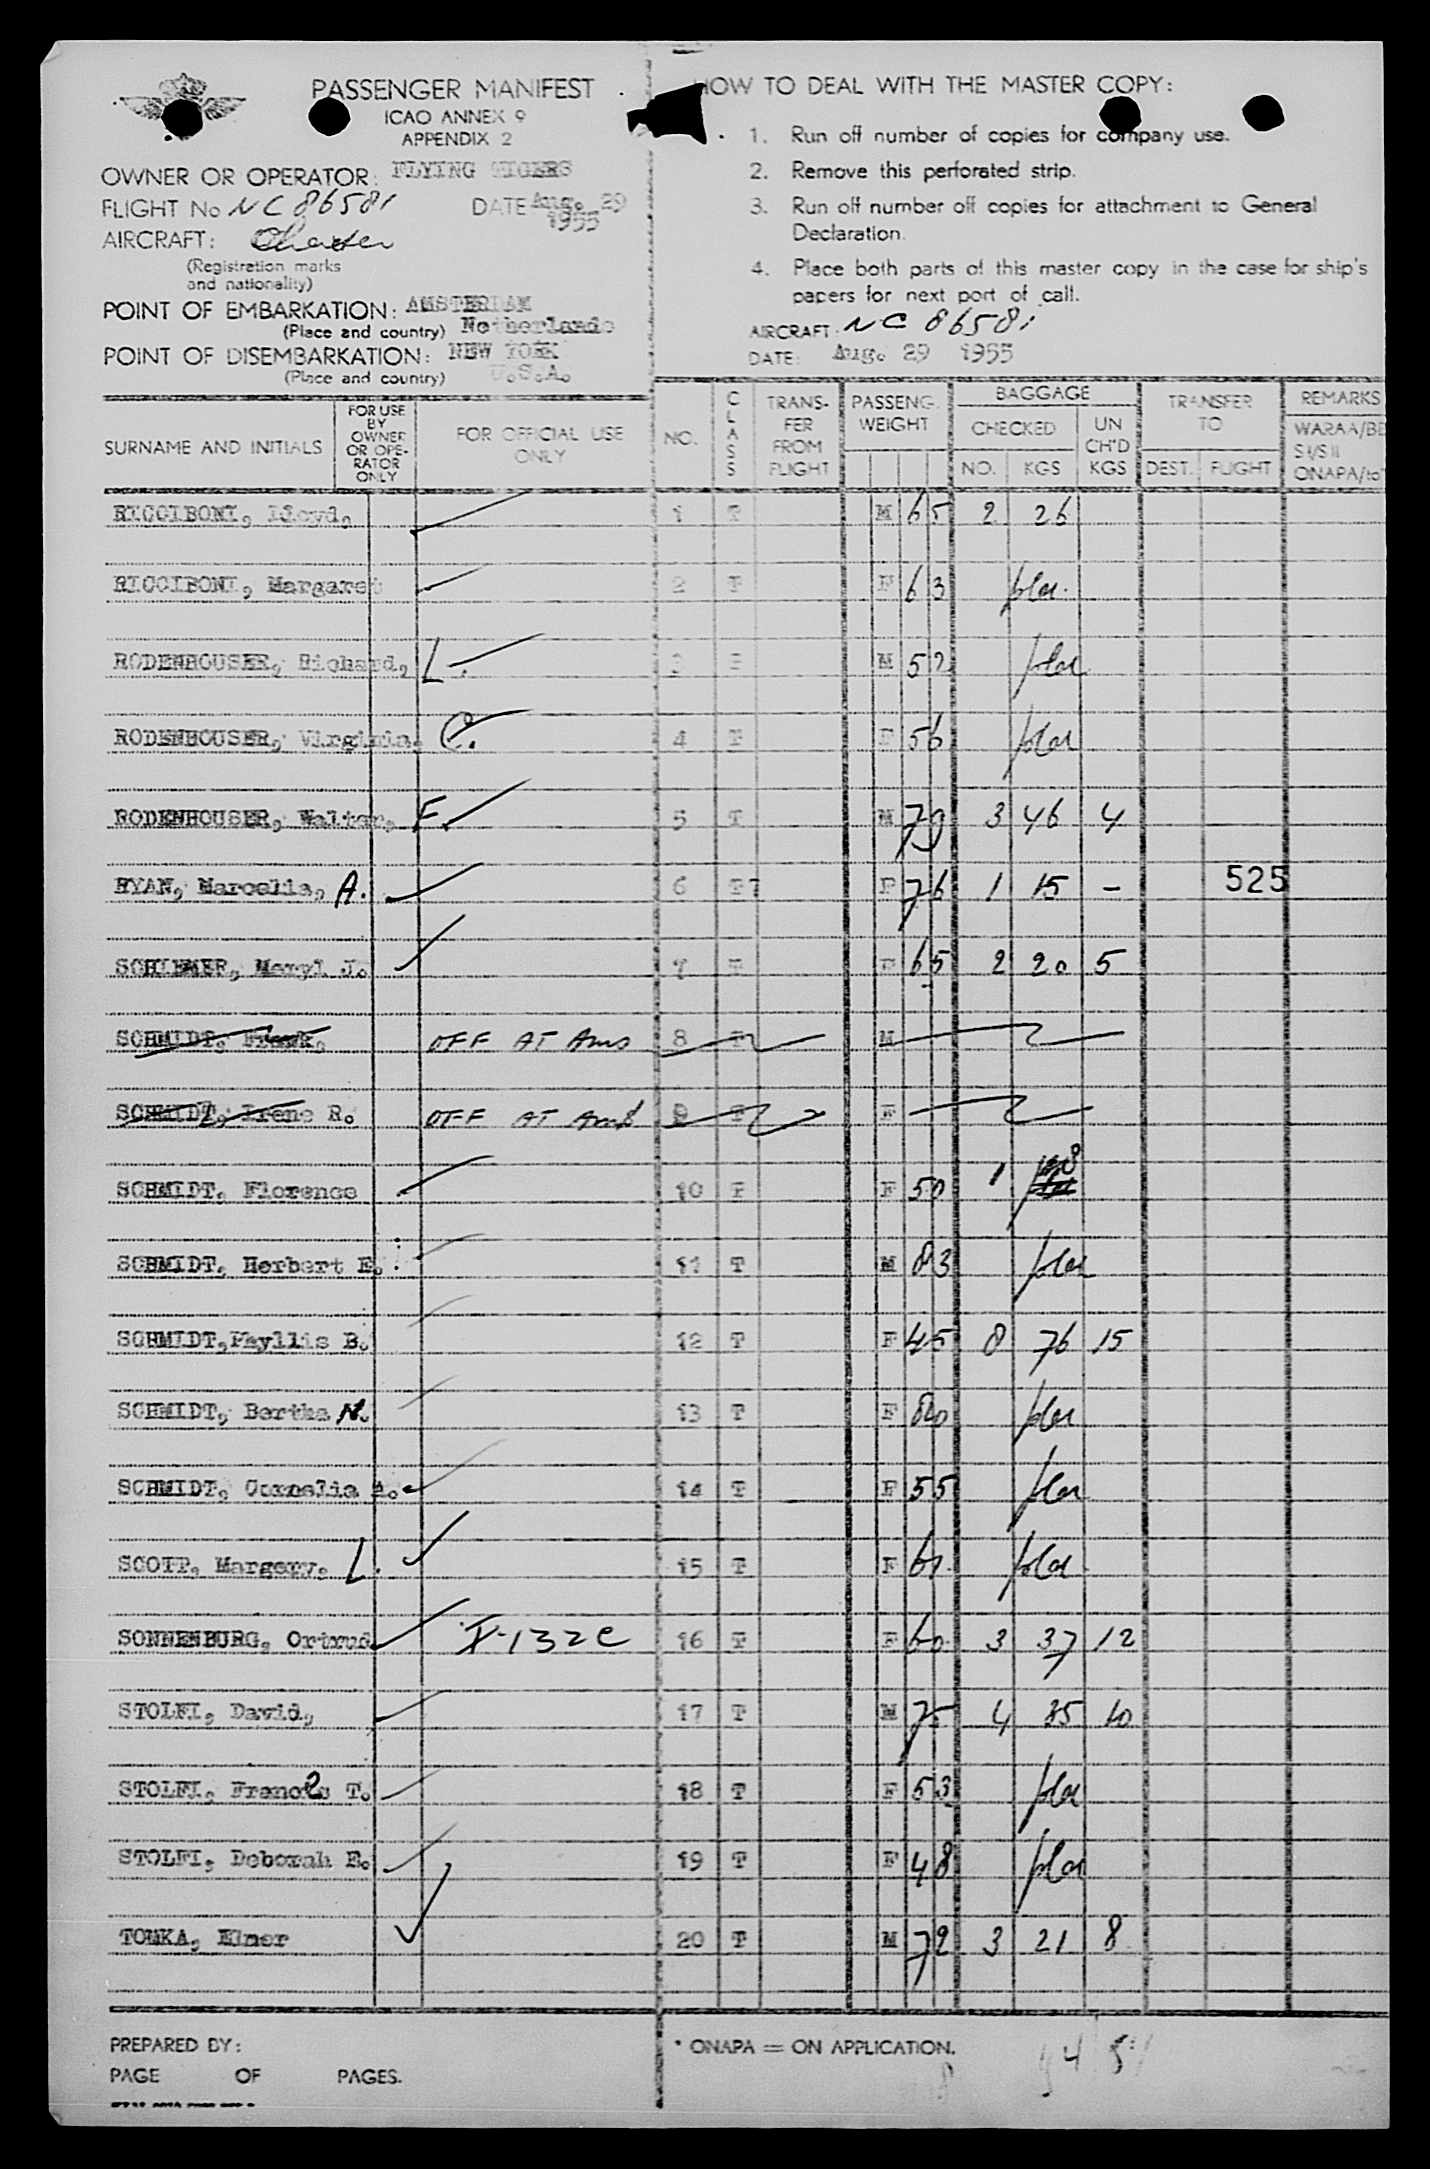 PASSENGER MANIFEST
ICAO ANNEX 9
APPENDIX 2
OWNER OR OPERATOR: FLYING TIGERS
FLIGHT No NC 86581 DATE Aug. 29 1955
AIRCRAFT: Charter
(Registration marks
and nationality)
POINT OF EMBARKATION: AMSTERDAM
(Place and country) Netherlands
POINT OF DISEMBARKATION: NEW YORK
(Place and country) U.S.A.
HOW TO DEAL WITH THE MASTER COPY:
1. Run off number of copies for company use.
2. Remove this perforated strip.
3. Run off number off copies for attachment to General
Declaration.
4. Place both parts of this master copy in the case for ship's
papers for next port of call.
AIRCRAFT: NC 86581
DATE: Aug. 29 1955
SURNAME AND INITIALS
FOR USE
BY
OWNER
OR OPE-
RATOR
ONLY
FOR OFFICIAL USE
ONLY
NO.
CLASS
TRANS-
FER
FROM
FLIGHT
PASSENG.
WEIGHT
BAGGAGE
CHECKED
NO. KGS
UN
CH'D
KGS
TRANSFER
TO
DEST. FLIGHT
REMARKS
WARAA/BD
SI/SII
ONAPA/to
RICCIBONI, Lloyd, 1 T M 65 2 26
RICCIBONI, Margaret 2 T F 63
RODENHOUSER, Richard, L. 3 M 52
RODENHOUSER, Virginia, C. 4 T F 56
RODENHOUSER, Walter, F. 5 T M 79 3 46 4
RYAN, Marcelia, A. 6 T F 76 1 15 - 525
SCHIEMER, Meryl J. 7 T F 65 2 20 5
SCHMIDT, Frank, OFF AT Ams 8 T M
SCHMIDT, Irene R. OFF AT Ams 9 T F
SCHMIDT, Florence 10 T F 50 1
SCHMIDT, Herbert E. 11 T M 83
SCHMIDT, Phyllis B. 12 T F 45 8 76 15
SCHMIDT, Bertha M. 13 T F
SCHMIDT, Cornelia A. 14 T F 55
SCOTT, Margery, L. 15 T F
SONNENBURG, Ortrud I-132c 16 T F 60 3 37 12
STOLFI, David, 17 T M 75 4 35 10
STOLFI, Frances T. 18 T F 53
STOLFI, Deborah E. 19 T F 48
TOMKA, Elmer 20 T M 72 3 21 8
PREPARED BY:
PAGE OF PAGES.
* ONAPA = ON APPLICATION.